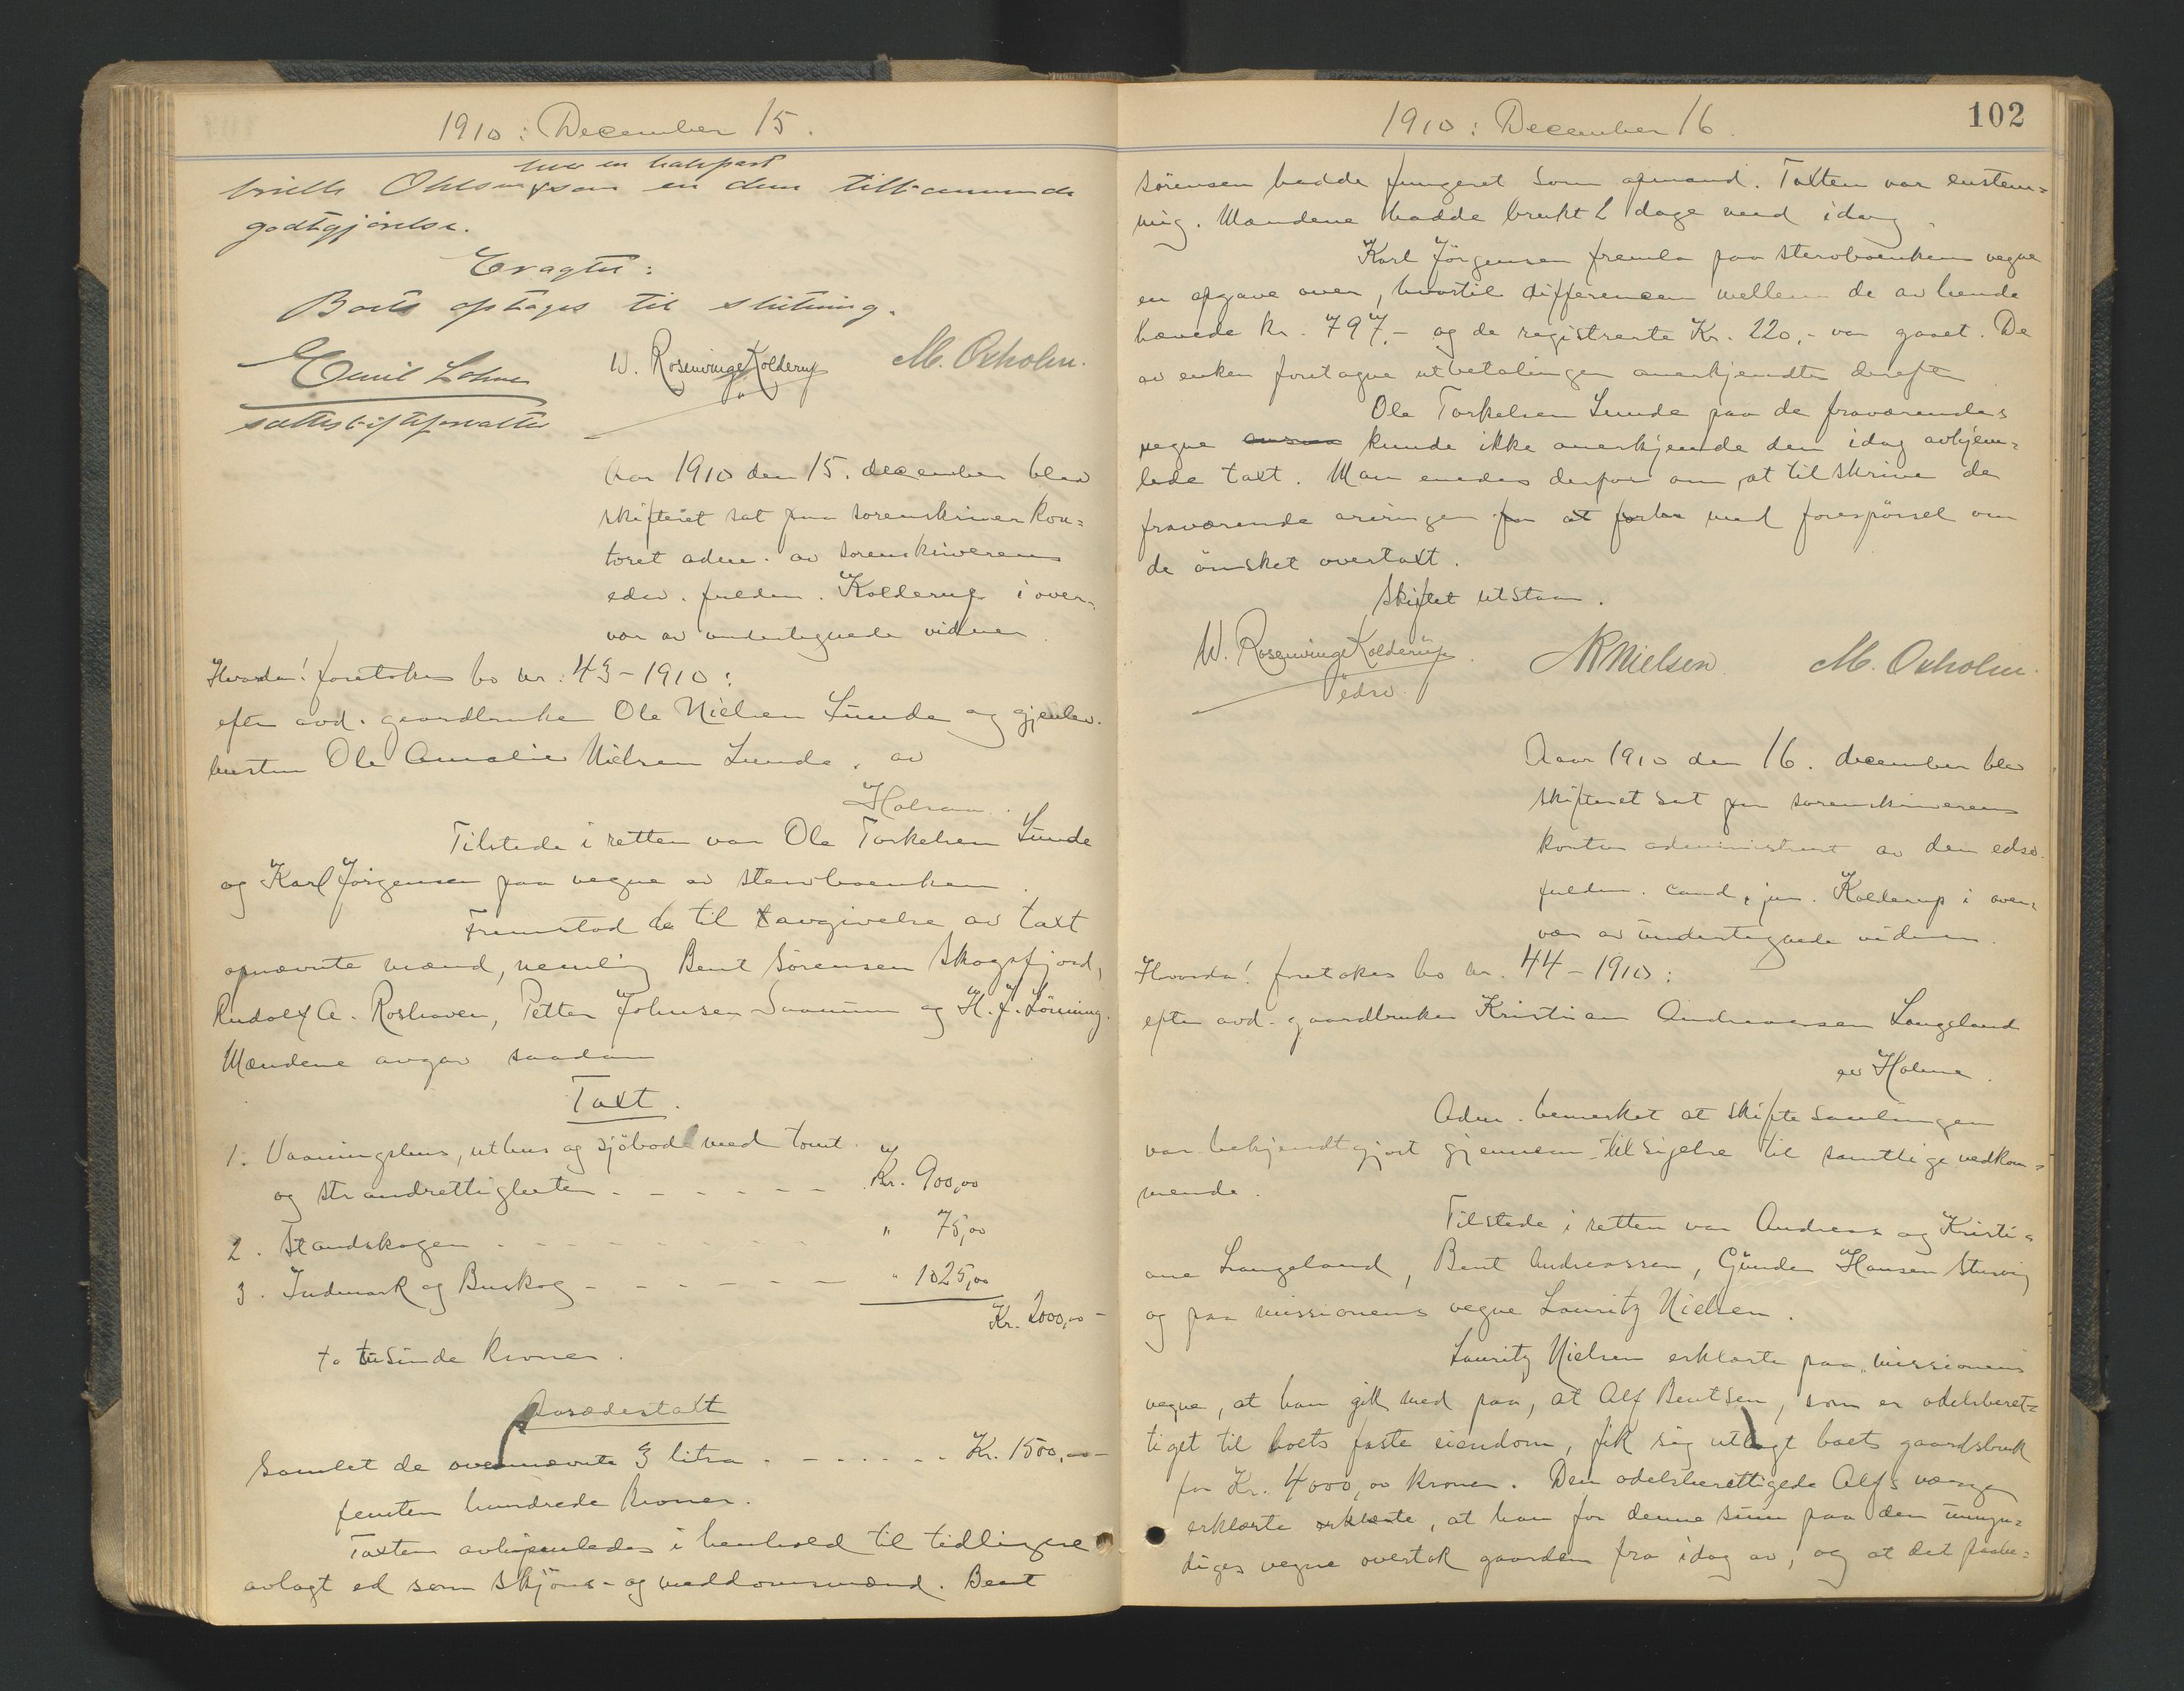 1910: December 15.
hver en halvpart
brielle Ohlsen som en dem tilkommende
godtgjörelse.
Eragtet:
Boets optages til slutning.
Emil Lohne
sættesbiftsforvalter
W. Rosenvinge Kolderup
M. Oxholm.
Aar 1910 den 15. december blev
skifteret sat paa sorenskriverkon=
toret adm. av sorenskriverens
edsv. fuldm. Kolderup i over=
vær av undertegnede vidner.
Hvorda! foretokes bo nr. 43-1910:
efter avd. gaardbruker Ole Nielsen Lunde og gjenlev.
hustru Ole Amalie Nielsen Lunde, av
Holum.
Tilstede i retten var Ole Torkelsen Lunde
og Karl Jörgensen paa vegne av stervboenken.
Fremstod de til avgivelse av taxt
opnævnte mænd, nemlig Bent Sörensen Skogsfjord,
Rudolf A. Roshaven, Petter Johnsen Saanum og H. J. Lönning.
Mændene avgav saadan
Taxt.
1. Vaaningshus, uthus og sjöbod med tomt
og strandrettigheter - - - - - - Kr. 900,00
2. Standskogen - - - - - - - " 75,00
3. Indmark og Buskog - - - - - - " 1025,00
Kr. 2000,00-
to tusinde kroner.
Aasædestaxt
Samlet de ovennævnte 3 litra - - - - - - Kr. 1500,00-
femten hundrede kroner.
Taxten avhjemledes i henhold til tidligere
avlagt ed som skjöns- og meddomsmænd. Bent
1910: December 16.
102
Sörensen hadde fungeret som opmand. Taxten var enstem=
mig. Mændene hadde brukt 2 dage med idag.
Karl Jörgensen fremla paa stervboenkens vegne
en opgave over, hvortil differencen mellem de av hende
hævede kr. 797,- og de registrerte Kr. 220,- var gaaet. De
av enken foretagne utbetalinger anerkjendtes derefter.
Ole Torkelsen Lunde paa de fraværendes
vegne kunde ikke anerkjende den idag avhjem=
lede taxt. Man enedes derfor om at tilskrive de
fraværende arvinger med forespörsel om
de önsket overtaxt.
Skiftet utstaar.
W. Rosenvinge Kolderup
edsv.
NRNielsen
M. Oxholm.
Aar 1910 den 16. december blev
skifteret sat paa sorenskriverens
kontor administrert av den edsv.
fuldm. cand. jur. Kolderup i over=
vær av undertegnede vidner.
Hvorda! foretokes bo nr. 44-1910:
efter avd. gaardbruker Kristian Andreassen Langeland
av Holme.
Adm. bemerket at skiftesamlingen
var bekjendtgjort gjennem tilsigelse til samtlige vedkom=
mende.
Tilstede i retten var Andreas og Kristi=
ane Langeland, Bent Andreassen, Gunder Hansen
og paa missionens vegne Lauritz Nielsen.
Lauritz Nielsen erklærte paa missionens
vegne, at han gik med paa, at Alf Bentsen, som er odelsberet=
tiget til boets faste eiendom, fik sig utlagt boets gaardsbruk
for Kr. 4000,00 kroner. Den odelsberettigede Alfs værge
erklærte erklærte, at han for denne sum paa den umyn=
diges vegne overtok gaarden fra idag av, og at det paahe=